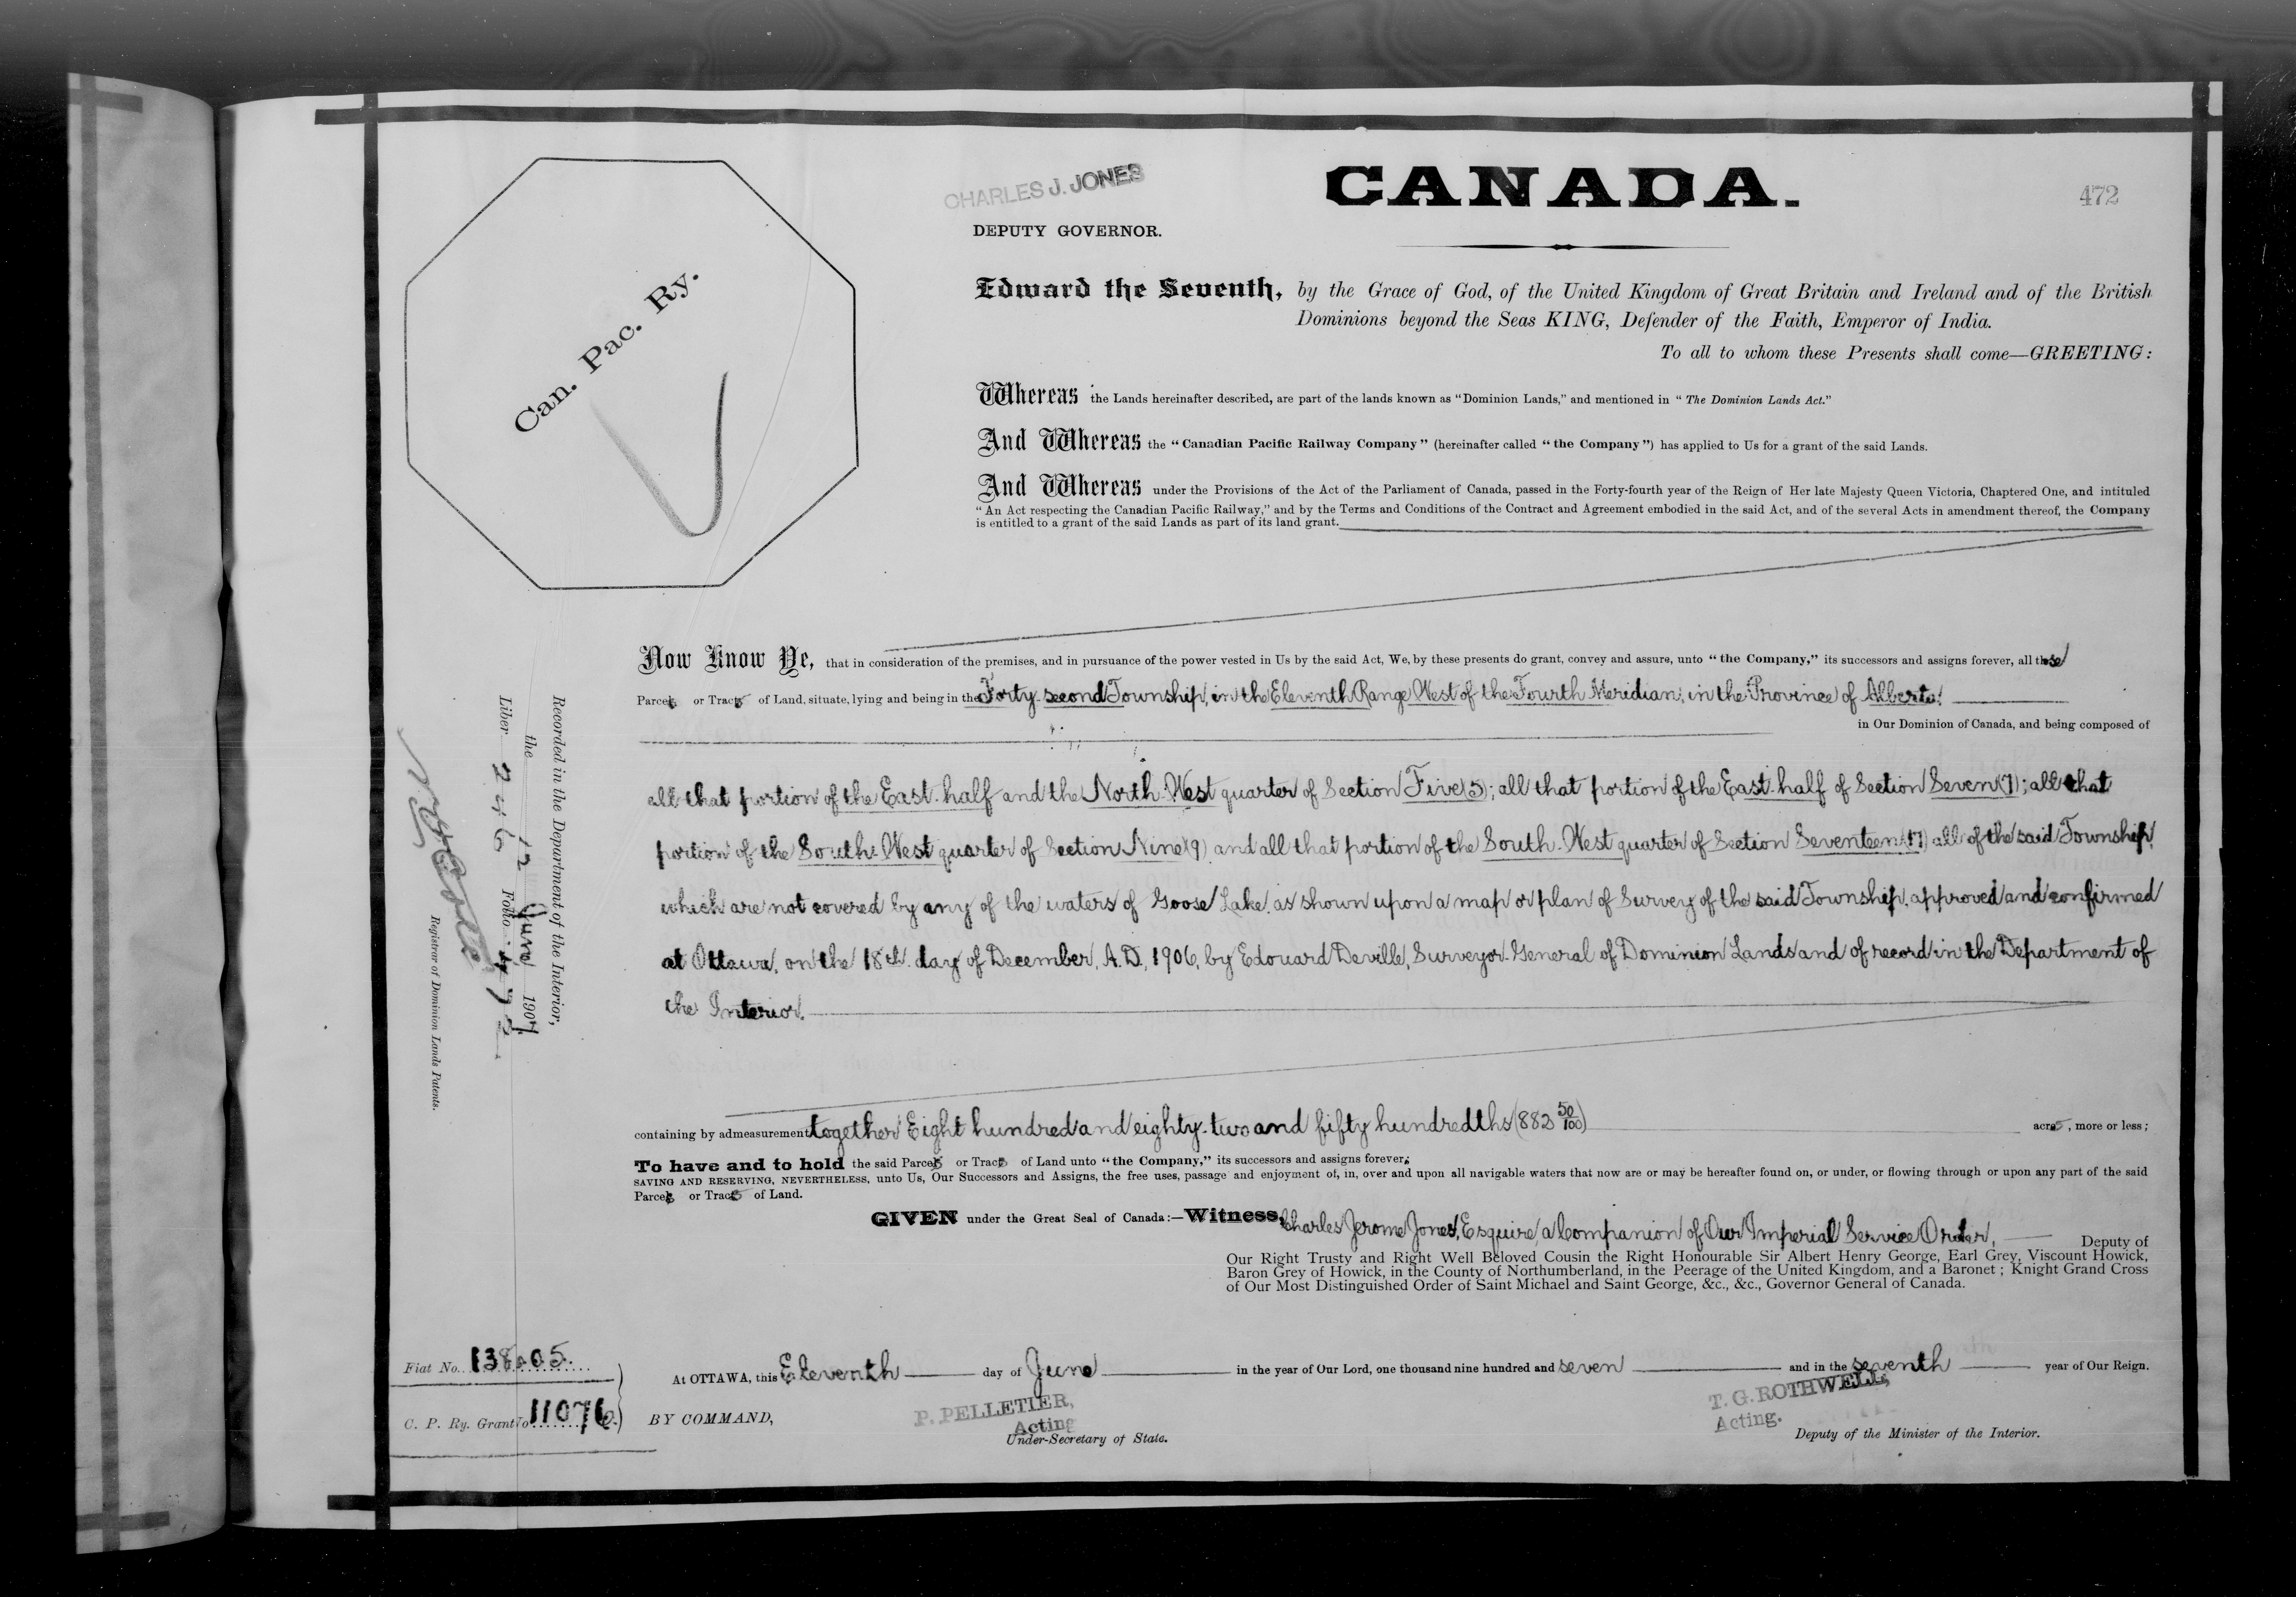 CHARLES J. JONES
CANADA.
472
DEPUTY GOVERNOR.
Can. Pac. Ry.
Edward the Seventh, by the Grace of God, of the United Kingdom of Great Britain and Ireland and of the British
Dominions beyond the Seas KING, Defender of the Faith, Emperor of India.
To all to whom these Presents shall come—GREETING:
Whereas the Lands hereinafter described, are part of the lands known as "Dominion Lands," and mentioned in "The Dominion Lands Act."
And Whereas the "Canadian Pacific Railway Company" (hereinafter called "the Company") has applied to Us for a grant of the said Lands.
And Whereas under the Provisions of the Act of the Parliament of Canada, passed in the Forty-fourth year of the Reign of Her late Majesty Queen Victoria, Chaptered One, and intituled
"An Act respecting the Canadian Pacific Railway," and by the Terms and Conditions of the Contract and Agreement embodied in the said Act, and of the several Acts in amendment thereof, the Company
is entitled to a grant of the said Lands as part of its land grant.
Now Know Ye, that in consideration of the premises, and in pursuance of the power vested in Us by the said Act, We, by these presents do grant, convey and assure, unto "the Company," its successors and assigns forever, all those
Parcels or Tracts of Land, situate, lying and being in the Forty-second Township, in the Eleventh Range West of the Fourth Meridian, in the Province of Alberta,
in Our Dominion of Canada, and being composed of
all that portion of the East-half and the North-West quarter of Section Five (5); all that portion of the East-half of Section Seven (7); all that
portion of the South-West quarter of Section Nine (9) and all that portion of the South-West quarter of Section Seventeen (17) all of the said Township,
which are not covered by any of the waters of Goose Lake, as shown upon a map or plan of Survey of the said Township, approved and confirmed
at Ottawa, on the 18th day of December, A.D. 1906, by Edouard Deville, Surveyor-General of Dominion Lands and of record in the Department of
the Interior,
containing by admeasurement together Eight hundred and eighty-two and fifty hundredths (882 50/100) acres, more or less;
To have and to hold the said Parcels or Tracts of Land unto "the Company," its successors and assigns forever;
SAVING AND RESERVING, NEVERTHELESS, unto Us, Our Successors and Assigns, the free uses, passage and enjoyment of, in, over and upon all navigable waters that now are or may be hereafter found on, or under, or flowing through or upon any part of the said
Parcels or Tracts of Land.
GIVEN under the Great Seal of Canada:—Witness, Charles Jerome Jones, Esquire, a Companion of Our Imperial Service Order, Deputy of
Our Right Trusty and Right Well Beloved Cousin the Right Honourable Sir Albert Henry George, Earl Grey, Viscount Howick,
Baron Grey of Howick, in the County of Northumberland, in the Peerage of the United Kingdom, and a Baronet; Knight Grand Cross
of Our Most Distinguished Order of Saint Michael and Saint George, &c., &c., Governor General of Canada.
At OTTAWA, this Eleventh day of June in the year of Our Lord, one thousand nine hundred and seven and in the seventh year of Our Reign.
BY COMMAND,
P. PELLETIER,
Acting
Under-Secretary of State.
T. G. ROTHWELL,
Acting.
Deputy of the Minister of the Interior.
Fiat No. 138405.
C. P. Ry. Grant No 11076.
Recorded in the Department of the Interior,
the 12 June 1907
Liber 246 Folio 472
Registrar of Dominion Lands Patents.